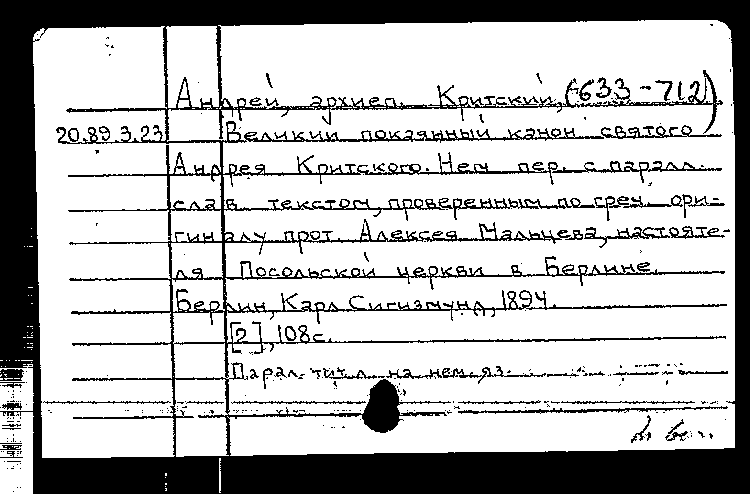 Андрей, архиеп. Критский, (633-712)
20.89.3.23 Великий покаянный канон святого
Андрея Критского. Нем. пер. с паралл.
слав. текстом, проверенным по греч. ори-
гиналу прот. Алексея Мальцева, настояте-
ля Посольской церкви в Берлине.
Берлин, Карл Сигизмунд, 1894.
[2], 108 с.
Парал. тит. л. на нем. яз.